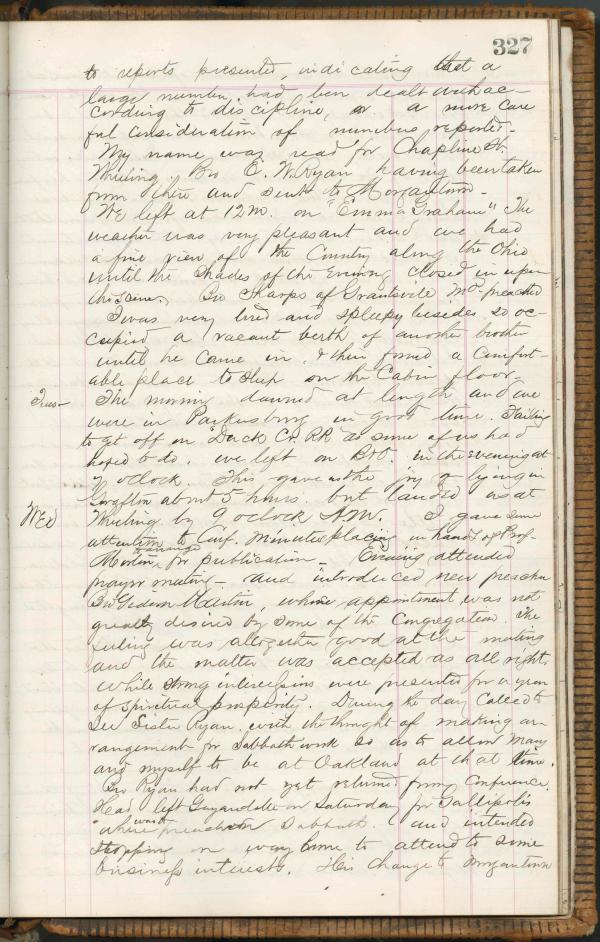 327
to reports presented, indicating that a
large number had been dealt with ac-
cording to discipline, or a more care
ful consideration of numbers reported.
My name was read for Chapline St.
Wheeling, Bro E. W. Ryan having been taken
from there and sent to Morgantown -
We left at 12 M. on "Emma Graham" The
weather was very pleasant and we had
a fine view of the Country along the Ohio
until the Shades of the Evening closed in upon
the scene. Bro Sharps of Grantsville Md. preached
I was very tired and sleepy besides so oc-
cupied a vacant berth of another brother
until he came in, & then found a comfort-
able place to sleep on the Cabin floor.
Tues- The morning dawned at length and we
were in Parkersburg in good time. Failing
to get off on "Duck Cr. RR" as some of us had
hoped to do, we left on B&O. in the evening at
o'clock. This gave us the joy of lying in
Grafton about 5 hours. but landed us at
Wed Wheeling by 9 oclock A.M. I gave some
attention to Conf. Minutes placing in hands of Prof.
Martin to arrange for publication - Evening attended
prayer meeting - and introduced new preacher
Bro Gideon Martin, whose appointment was not
greatly desired by some of the Congregation. The
feeling was altogether good at the meeting
and the matter was accepted as all right
while strong intercessions were presented for a year
of Spiritual prosperity. During the day Called to
see Sister Ryan, with the thought of making ar-
rangement for Sabbath work so as to allow Mary
and myself to be at Oakland at that time.
Bro Ryan had not yet returned from Conference.
Had left Guyandotte on Saturday for Gallipolis
where was to preach on Sabbath. and intended
stopping on way home to attend to some
business interests. His change to Morgantown